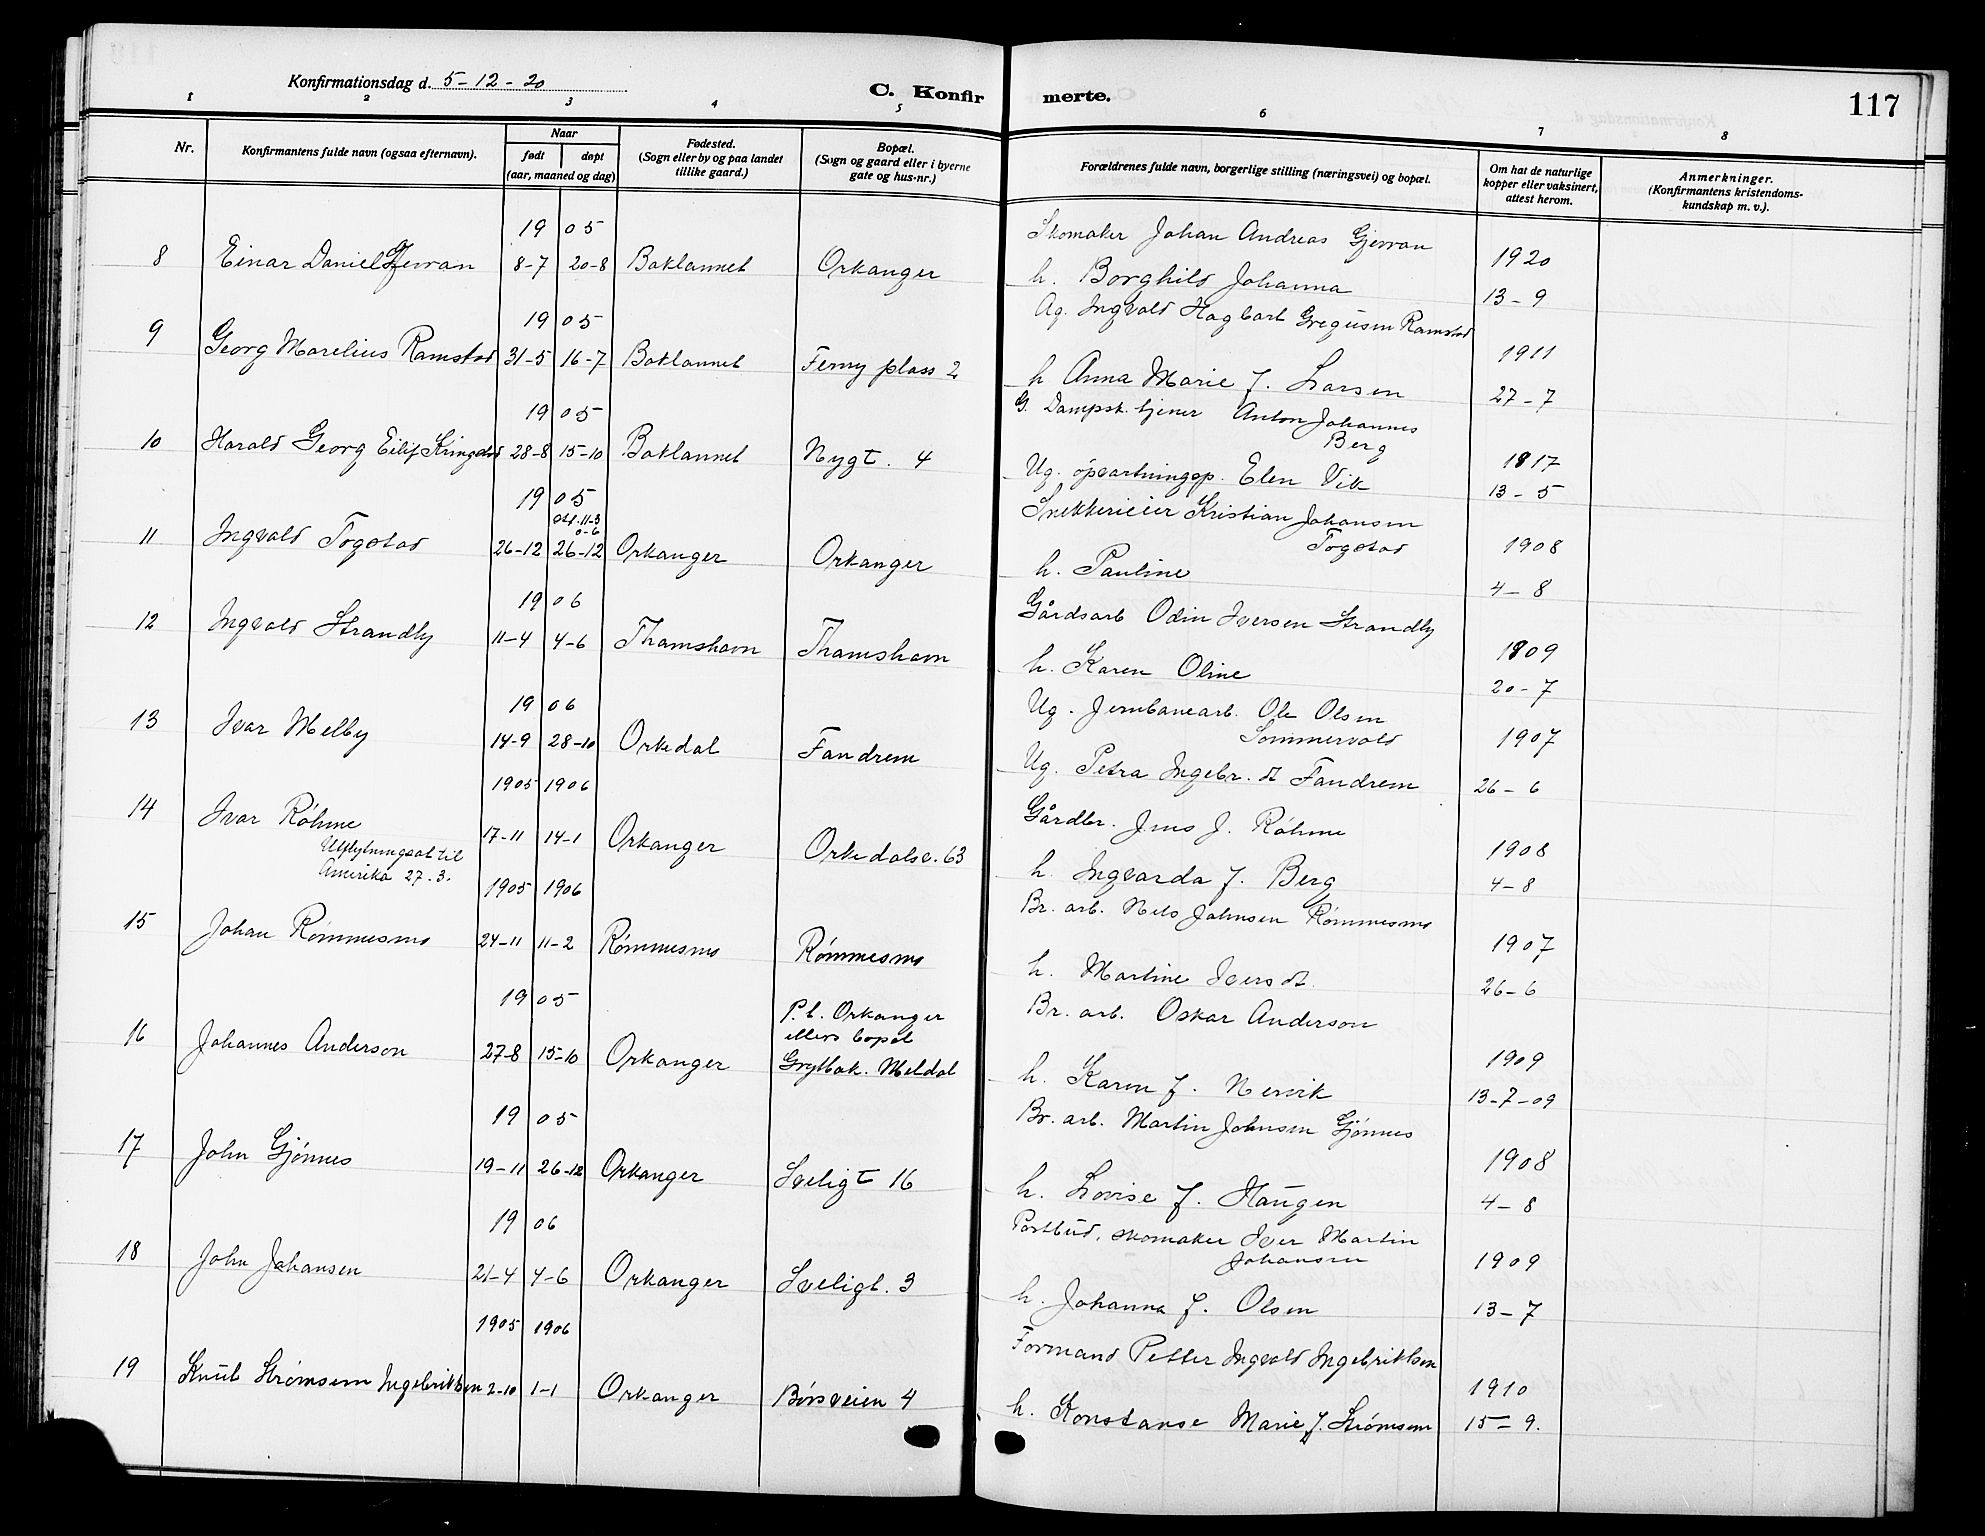 Konfirmationsdag d. 5-12-20
C. Konfirmerte.
117
1 2 3 4 5 6 7 8
Nr.
Konfirmantens fulde navn (ogsaa efternavn).
Naar
født døpt
(aar, maaned og dag)
Fødested.
(Sogn eller by og paa landet
tillike gaard.)
Bopæl.
(Sogn og gaard eller i byerne
gate og hus-nr.)
Forældrenes fulde navn, borgerlige stilling (næringsvei) og bopæl.
Om hat de naturlige
kopper eller vaksinert,
attest herom.
Anmerkninger.
(Konfirmantens kristendoms-
kundskap m. v.).
19 05
Skomaker Johan Andreas Gjervan
8 Einar Daniel Gjervan 8-7 20-8 Baklannet Orkanger
1920
h. Borghild Johanna
13-9
19 05
Ag. Ingvald Hagbart Gregusen Ramstad
9 Georg Marelius Ramstad 31-5 16-7 Baklannet Ferny plass 2
1911
h Anna Marie f. Larsen
27-7
19 05
G. Dampsk. tjener Anton Johannes
Berg
10 Harald Georg Eilif Kringstad 28-8 15-10 Baklannet Nygt. 4
1917
Ug. opvartningsp. Elen Vik
13-5
19 05
Snekkerieier Kristian Johansen
Togstad
11 Ingvald Togstad 26-12 26-12 Orkanger Orkanger
1908
h. Pauline
4-8
19 06
Gårdsarb Odin Iversen Strandby
12 Ingvald Strandby 11-4 4-6 Thamshavn Thamshavn
1909
h. Karen Oline
20-7
19 06
Ug. Jernbanearb. Ole Olsen
Sommervold
13 Ivar Melby 14-9 28-10 Orkedal Fandrem
1907
Ug. Petra Ingebr. dt Fandrem
26-6
1905 1906
Gårdbr. Jens J. Røhme
14 Ivar Røhme 17-11 14-1 Orkanger Orkedalsv. 63
Utflytningsat til
Amerika 27.3.
1908
h. Ingvarda f. Berg
4-8
1905 1906
Br. arb. Nils Johnsen Rømmesmo
15 Johan Rømmesmo 24-11 11-2 Rømmesmo Rømmesmo
1907
h. Martine Iversdt.
26-6
19 05
P.t. Orkanger
ellers bopæl
Br. arb. Oskar Anderson
16 Johannes Anderson 27-8 15-10 Orkanger Grytbak. Meldal
1909
h. Karen f. Nervik
13-7-09
19 05
Br. arb. Martin Johnsen Gjønnes
17 John Gjønnes 19-11 26-12 Orkanger Sveligt 16
1908
h. Lovise f. Haugen
4-8
19 06
Postbud, skomaker Iver Martin
Johansen
18 John Johansen 21-4 4-6 Orkanger Sveligt. 3
1909
h. Johanna f. Olsen
13-7
1905 1906
Formand Petter Ingvald Ingebriktsen
19 Knut Strømsem Ingebriktsen 2-10 1-1 Orkanger Børsveien 4
1910
h. Konstanse Marie f. Strømsem
15-9.